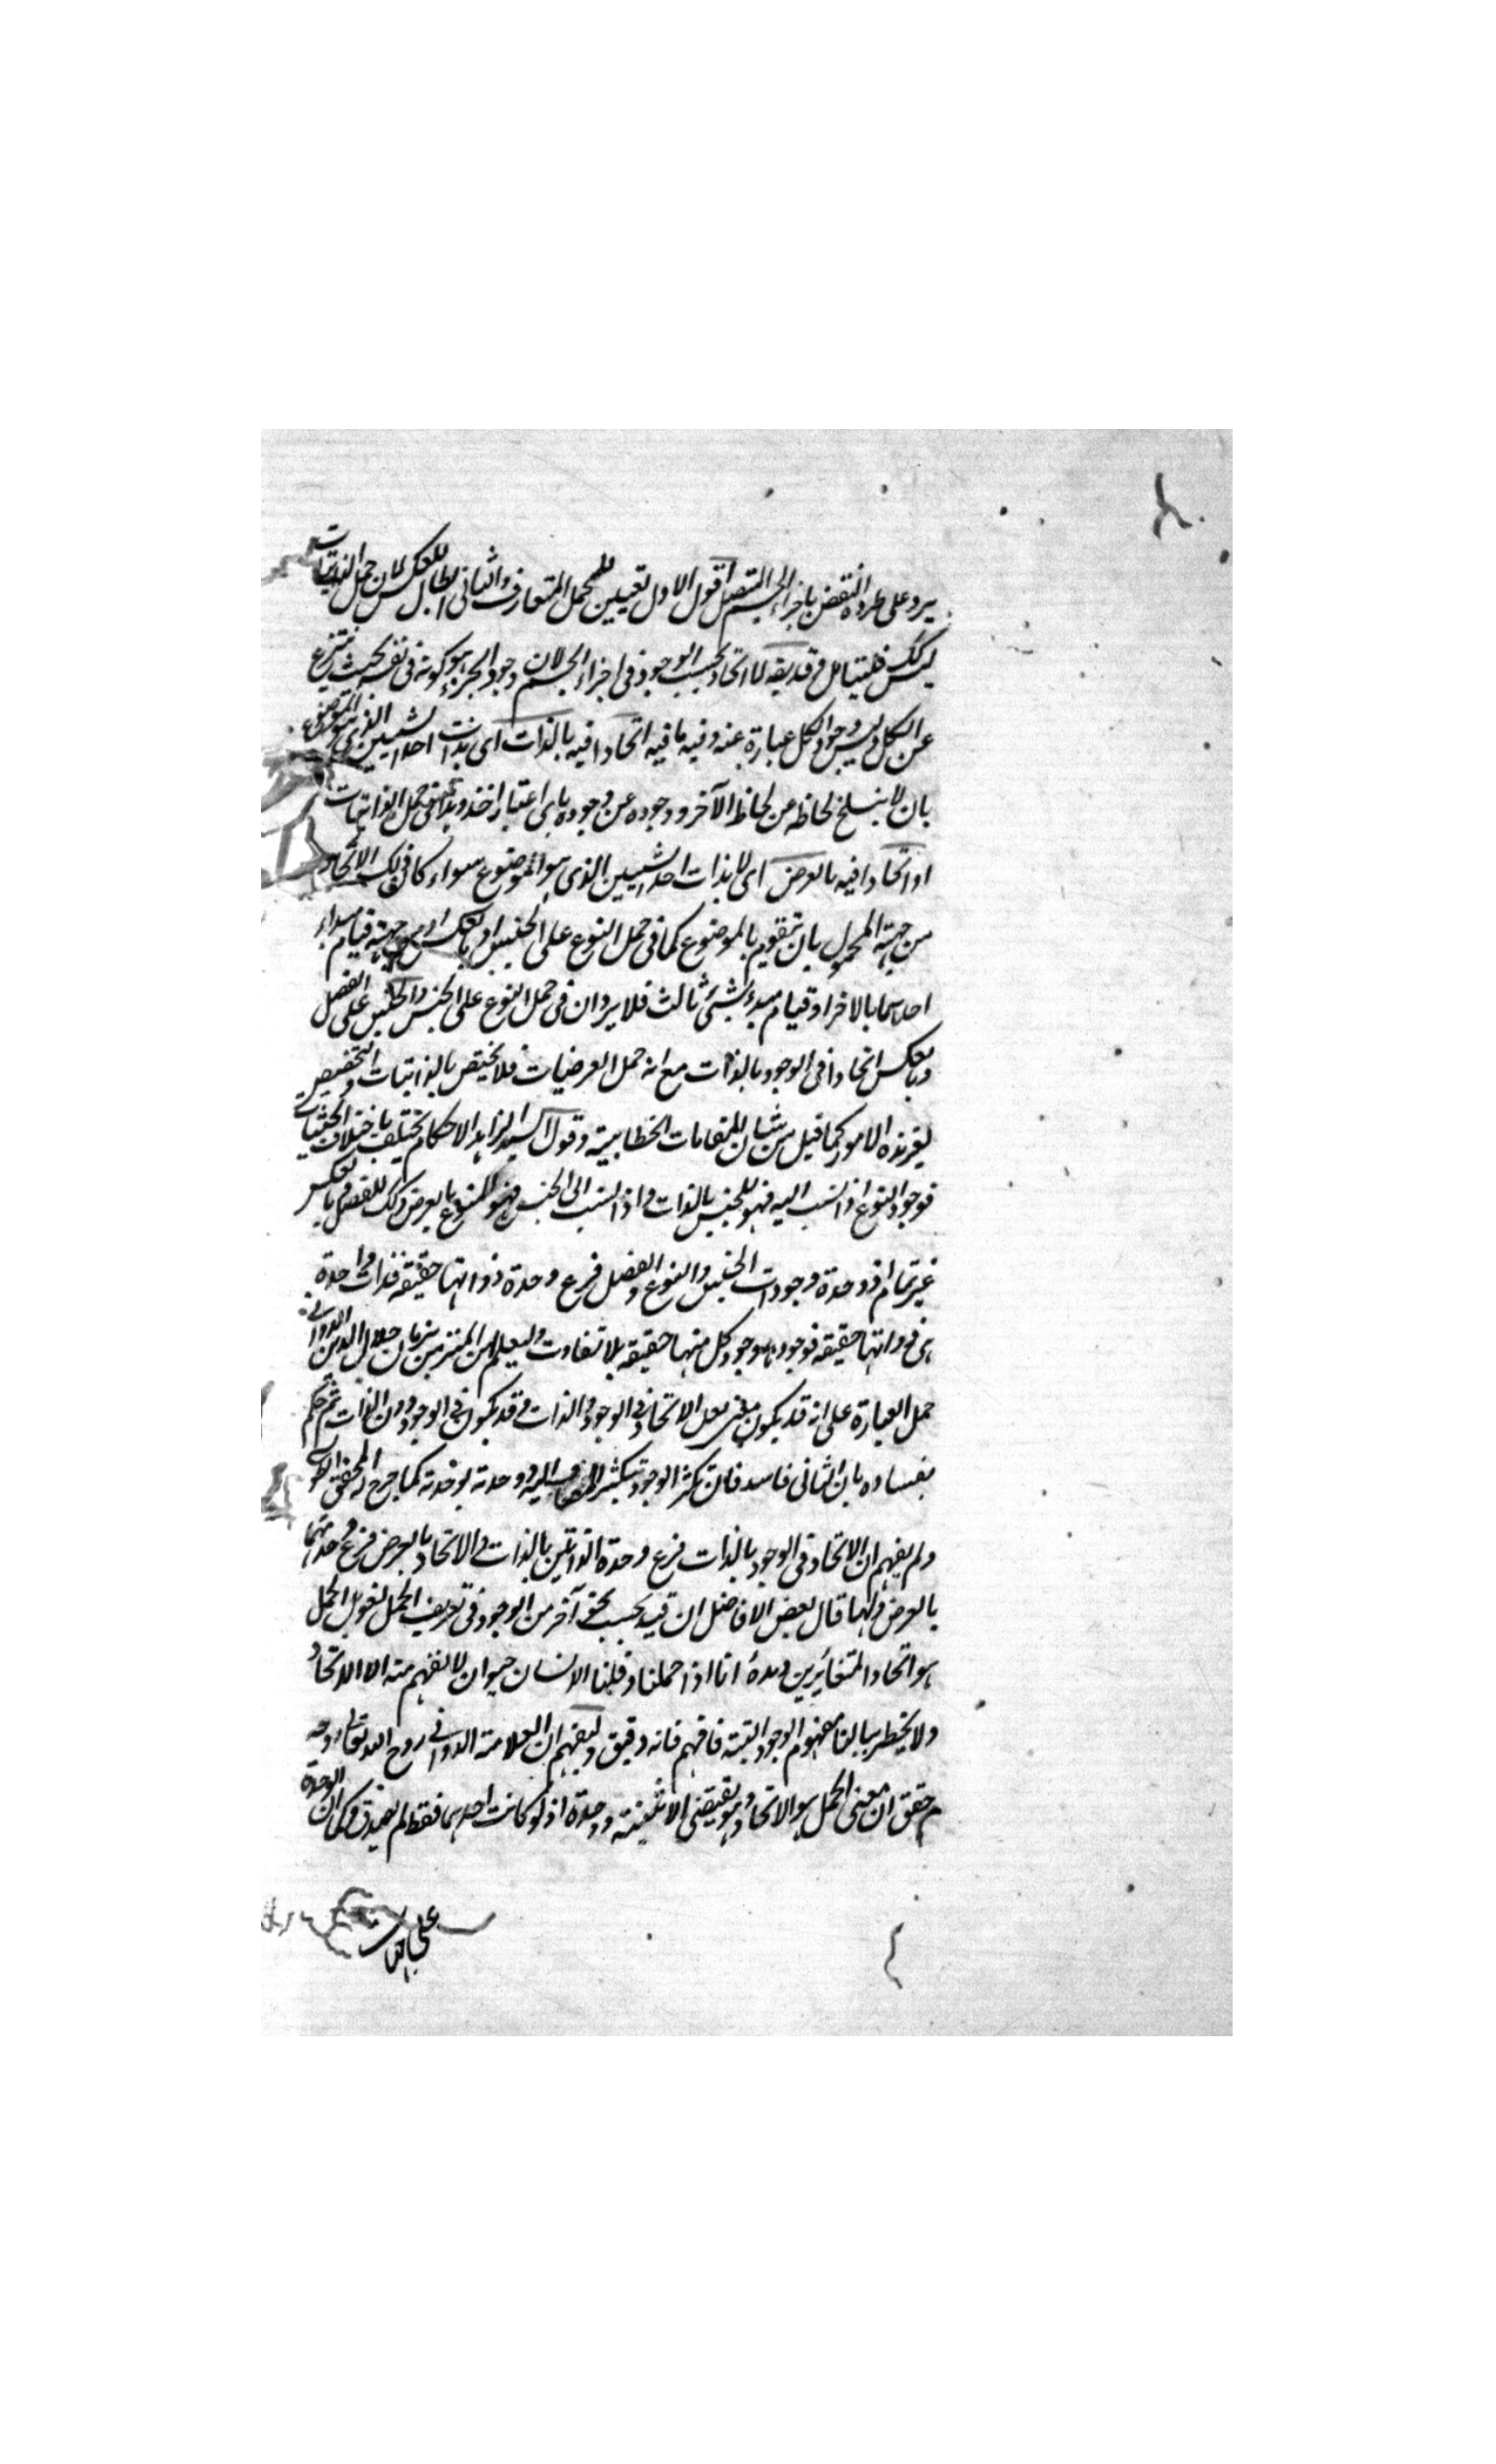 يرد على طرده النقض باجزاء الجسم المتصل اقول الاول تعيين للحمل المتعارف والثانى ابطال للعكس لان حمل الذاتيات
ليس كك فليتامل فى قد يقه لا اتحاد بحسب الوجود فى اجزاء الجسم لان وجود الجزء هو كونه فى نفسه بحيث ينتزع
عن الكل وليس وجود الكل عبارة عنه وفيه ما فيه اتحادا فيه بالذات اى بذات احد الشيئين الذى هو الموضوع
بان لا ينسلخ لحاظه عن لحاظ الآخر ووجوده عن وجوده باى اعتبار اخذ وبذا فى حمل الذاتيات
او اتحادا فيه بالعرض اى لا بذات احد الشيئين الذى هو الموضوع سواء كان ذلك الاتحاد
من جهة المحمول بان يتقوم بالموضوع كما فى حمل النوع على الجنس او بالعكس او من جهة قيام مبداء
احدهما بالآخر او قيام مبدء بشىء ثالث فلا يرد ان فى حمل النوع على الجنس والجنس على الفصل
وبالعكس اتحادا فى الوجود بالذات مع انه حمل العرضيات فلا يختص بالذاتيات والتخصيص
لغير هذه الامور كما قيل من شان المقامات الخطابية وقول السيد الزاهد الاحكام تختلف باختلاف الحيثيات
فوجود النوع اذا نسب اليه فهو للجنس بالذات واذا نسب الى الجنس فهو للنوع بالعرض وكك للفصل وبالعكس
غير تمام اذ وحدة وجودات الجنس والنوع والفصل فرع وحدة ذواتها حقيقة فذات واحدة
هى ذواتها حقيقة فوجوده وجود كل منها حقيقة بلا تفاوت وليعلم ان جلال الدين الدوانى
حمل العبارة على انه قد يكون الاتحاد فى الوجود والذات وقد يكون فى الوجود دون الذات ثم حكم
بفساده بان الثانى فاسد فان تكثر الوجود بتكثر المضاف اليه ووحدته بوحدته كما صرح به المحقق الطوسى
ولم يفهم ان الاتحاد فى الوجود بالذات فرع وحدة الذاتين بالذات والاتحاد بالعرض فرع وحدتهما
بالعرض ولهذا قال بعض الافاضل ان قيد بحسب نحو آخر من الوجود فى تعريف الحمل لغو بل الحمل
هو اتحاد المتغايرين انا اذا حملنا وقلنا الانسان حيوان لا نفهم منه الا الاتحاد
ولا يخطر ببالنا مفهوم الوجود البتة فافهم فانه دقيق وليفهم ان العلامة الدوانى روح الله تعالى روحه
حقق ان معنى الحمل هو الاتحاد وهو يقتضى الاثنينية ووحدة اذ لو كانت احدهما فقط لم يصدق وكما ان الوحدة
على